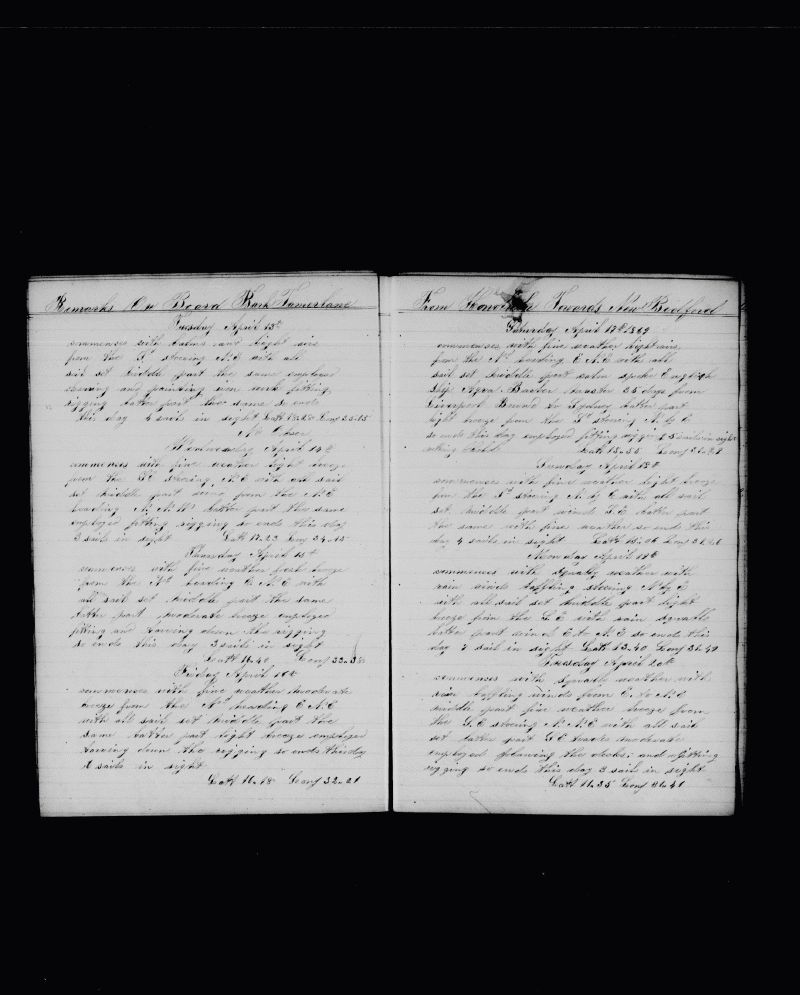 Remarks On Board Bark Tamerlane
Tuesday April 13th
commences with calms and light airs
from the Sd steering N.E with all
sail set middle part the same employed
and painting iron work fitting
rigging latter part the same so ends
this day 4 sails in sight Latt Long 35.15
No Obser
Wednesday April 14th
commences with fine weather light breeze
from the Sd steering N.E with all sail
set middle part wind from the N.E
heading N.N.W latter part the same
employed fitting rigging so ends this day
3 sails in sight Latt 17.23 Long 34.15
Thursday April 15th
commences with fine weather fresh breeze
from the Nd heading E.N.E with
all sail set middle part the same
latter part moderate breeze employed
fitting and down the rigging
so ends this day 3 sails in sight
Latt 16.40 Long 33.38
Friday April 16th
commences with fine weather moderate
breeze from the Nd heading E.N.E
with all sail set middle part the
same latter part light breeze employed
down the rigging so ends this day
6 sails in sight
Latt 16.18 Long 32.21
From Towards New Bedford
Saturday April 17th 1869
commences with fine weather light airs
from the Nd heading E.N.E with all
sail set middle part calm spoke English
Ship Master 25 days from
Liverpool Bound to Sydney latter part
light breeze from the Sd steering N.by E
so ends this day employed fitting rigging 5 sails in sight
Latt 15.55 Long 31.27
Sunday April 18th
commences with fine weather light breeze
from the Sd steering N by E with all sail
set middle part wind S.E latter part
the same with fine weather so ends this
day 4 sails in sight Latt Long 31.26
Monday April 19th
commences with squally weather with
rain winds baffling steering N by E
with all sail set middle part light
breeze from the S.E with rain squalls
latter part wind E to N.E so ends this
day sail in sight Latt 13.40 Long 31.49
Tuesday April 20th
commences with squally weather with
rain baffling winds from E. to N.E
middle part fine weather breeze from
the S.E steering N.N.E with all sail
set latter part S.E trades moderate
employed the decks and fitting
rigging so ends this day 3 sails in sight
Latt 11.35 Long 31.41